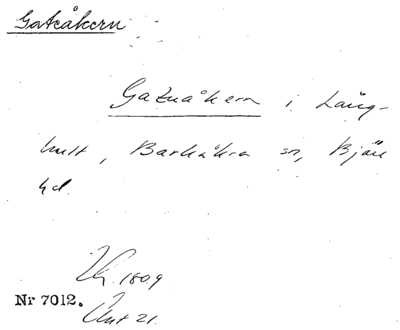 Gateåkern
Gatuåkern i Läng-
hult, Barkåkra sn, Bjäre
hd.
1809
Nr 7012.
Akt 21.